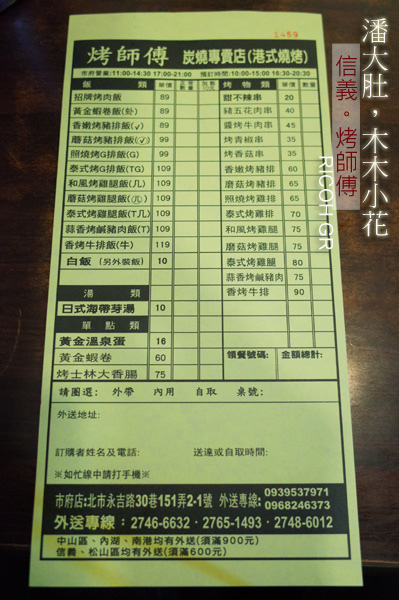 1459
烤師傅 炭燒專賣店(港式燒烤)
市府營業:11:00-14:30 17:00-21:00 預訂時間:10:00-15:00 16:30-20:30
飯類 單價
招牌烤肉飯 89
黃金蝦卷飯(卦) 89
香嫩烤豬排飯(√) 89
蘑菇烤豬排飯(√) 99
照燒烤G排飯(G) 109
泰式烤G排飯(TG) 109
和風烤雞腿飯(几) 109
蘑菇烤雞腿飯 109
泰式烤雞腿飯(T几) 109
蒜香烤鹹豬肉飯(T) 109
香烤牛排飯(牛) 119
白飯(另外裝飯) 10
湯類
日式海帶芽湯 10
單點類
黃金溫泉蛋 16
黃金蝦卷 60
烤士林大香腸 75
烤物類 單價
甜不辣串 20
豬五花肉串 40
醬烤牛肉串 45
烤青椒串 35
烤香菇串 35
香嫩烤豬排 60
蘑菇烤豬排 65
照燒烤雞排 65
泰式烤雞排 70
和風烤雞腿 75
蘑菇烤雞腿 75
泰式烤雞腿 80
蒜香烤鹹豬肉 75
香烤牛排 90
領餐號碼: 金額總計:
請圈選: 外帶 內用 自取 桌號:
外送地址:
訂購者姓名及電話: 送達或自取時間:
※如忙線中請打手機※
市府店:北市永吉路30巷151弄2-1號 外送專線: 0939537971
0968246373
外送專線:2746-6632・2765-1493・2748-6012
中山區、內湖、南港均有外送(須滿900元)
信義、松山區均有外送(須滿600元)
潘大肚,木木小花
信義。烤師傅
RICOH GR